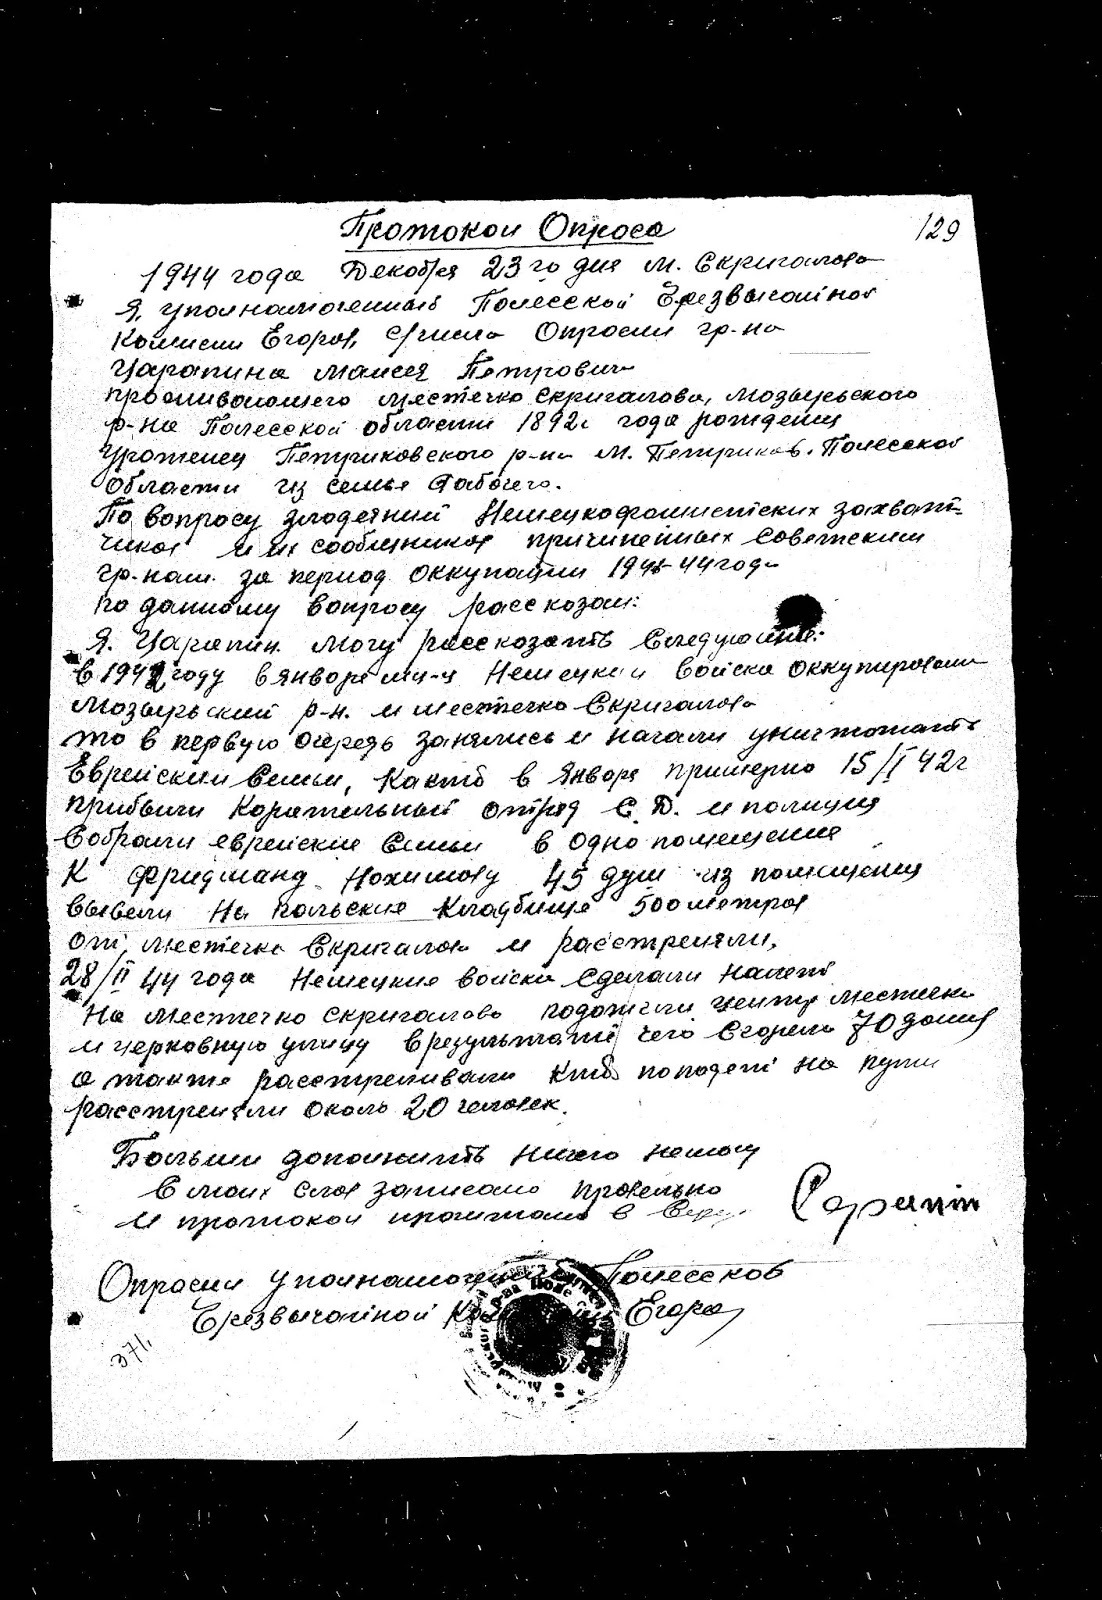 129
Протокол Опроса
1944 года Декабря 23 го дня м. Скригалова
Я, уполнамоченный Полесской Чрезвычайной
Комиссии Егоров, Опросил гр-на
Царапина Маисея Петрович
проживающего местечко Скригалова, Мозырьского
р-на Полесской области 1892 г года рождения
уроженец Петриковского р-на м. Петриков. Полесской
Области из семье Рабочего.
По вопросу злодеяний Немецкофашистских захват-
чиков и их сообщников причиненных Советским
гр-нам. за период оккупации 1941-44 года
по данному вопросу рассказал:
Я. Царапин. могу рассказать Следующие:
в 1942 году в январе м-ц Немецкии войска оккупировали
Мозырьский р-н. и местечко Скригалова
то в первую очередь занялись и начали уничтожать
Еврейскии Семьи, Както в Января примерно 15/I 42 г
прибыли Корательный отряд С.Д. и полиция
Собрали еврейские Семьи в одно помещение
К Фридманд Нохимову 45 душ из помещения
вывели На польские Кладбище 500 метров
от местечка Скригалова и расстреляли,
28/II 44 года Немецкие войска сделали налет
На местечко Скригалово подожгли центр местечка
и церковную улицу в результате чего Сгорело 70 домов
а также расстреливали кто попадет на пути
расстреляли около 20 человек.
Больше дополнить ничего немогу
С моих слов записано правельно
и протокол прочитано в
Caranin
Опросил Уполнамоченный Полесской
Чрезвычайной Егоров
371.